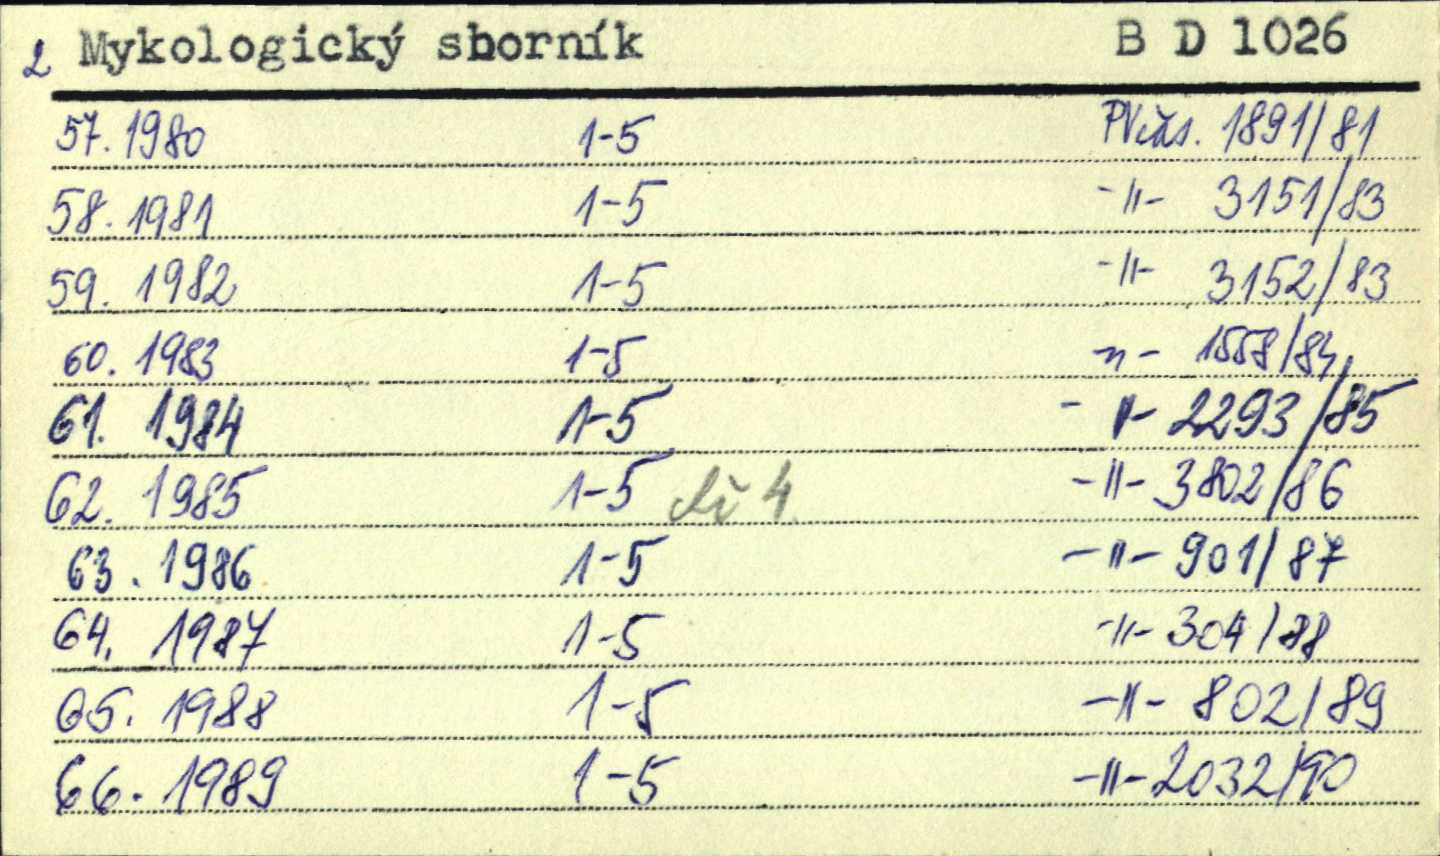 2 Mykologický sborník B D 1026
57. 1980 1-5 PVčas. 1891/81
58. 1981 1-5 -〃- 3151/83
59. 1982 1-5 -〃- 3152/83
60. 1983 1-5 -〃- 1558/84
61. 1984 1-5 -〃- 2293/85
62. 1985 1-5 4 -〃- 3802/86
63. 1986 1-5 -〃- 901/87
64. 1987 1-5 -〃- 304/88
65. 1988 1-5 -〃- 802/89
66. 1989 1-5 -〃- 2032/90